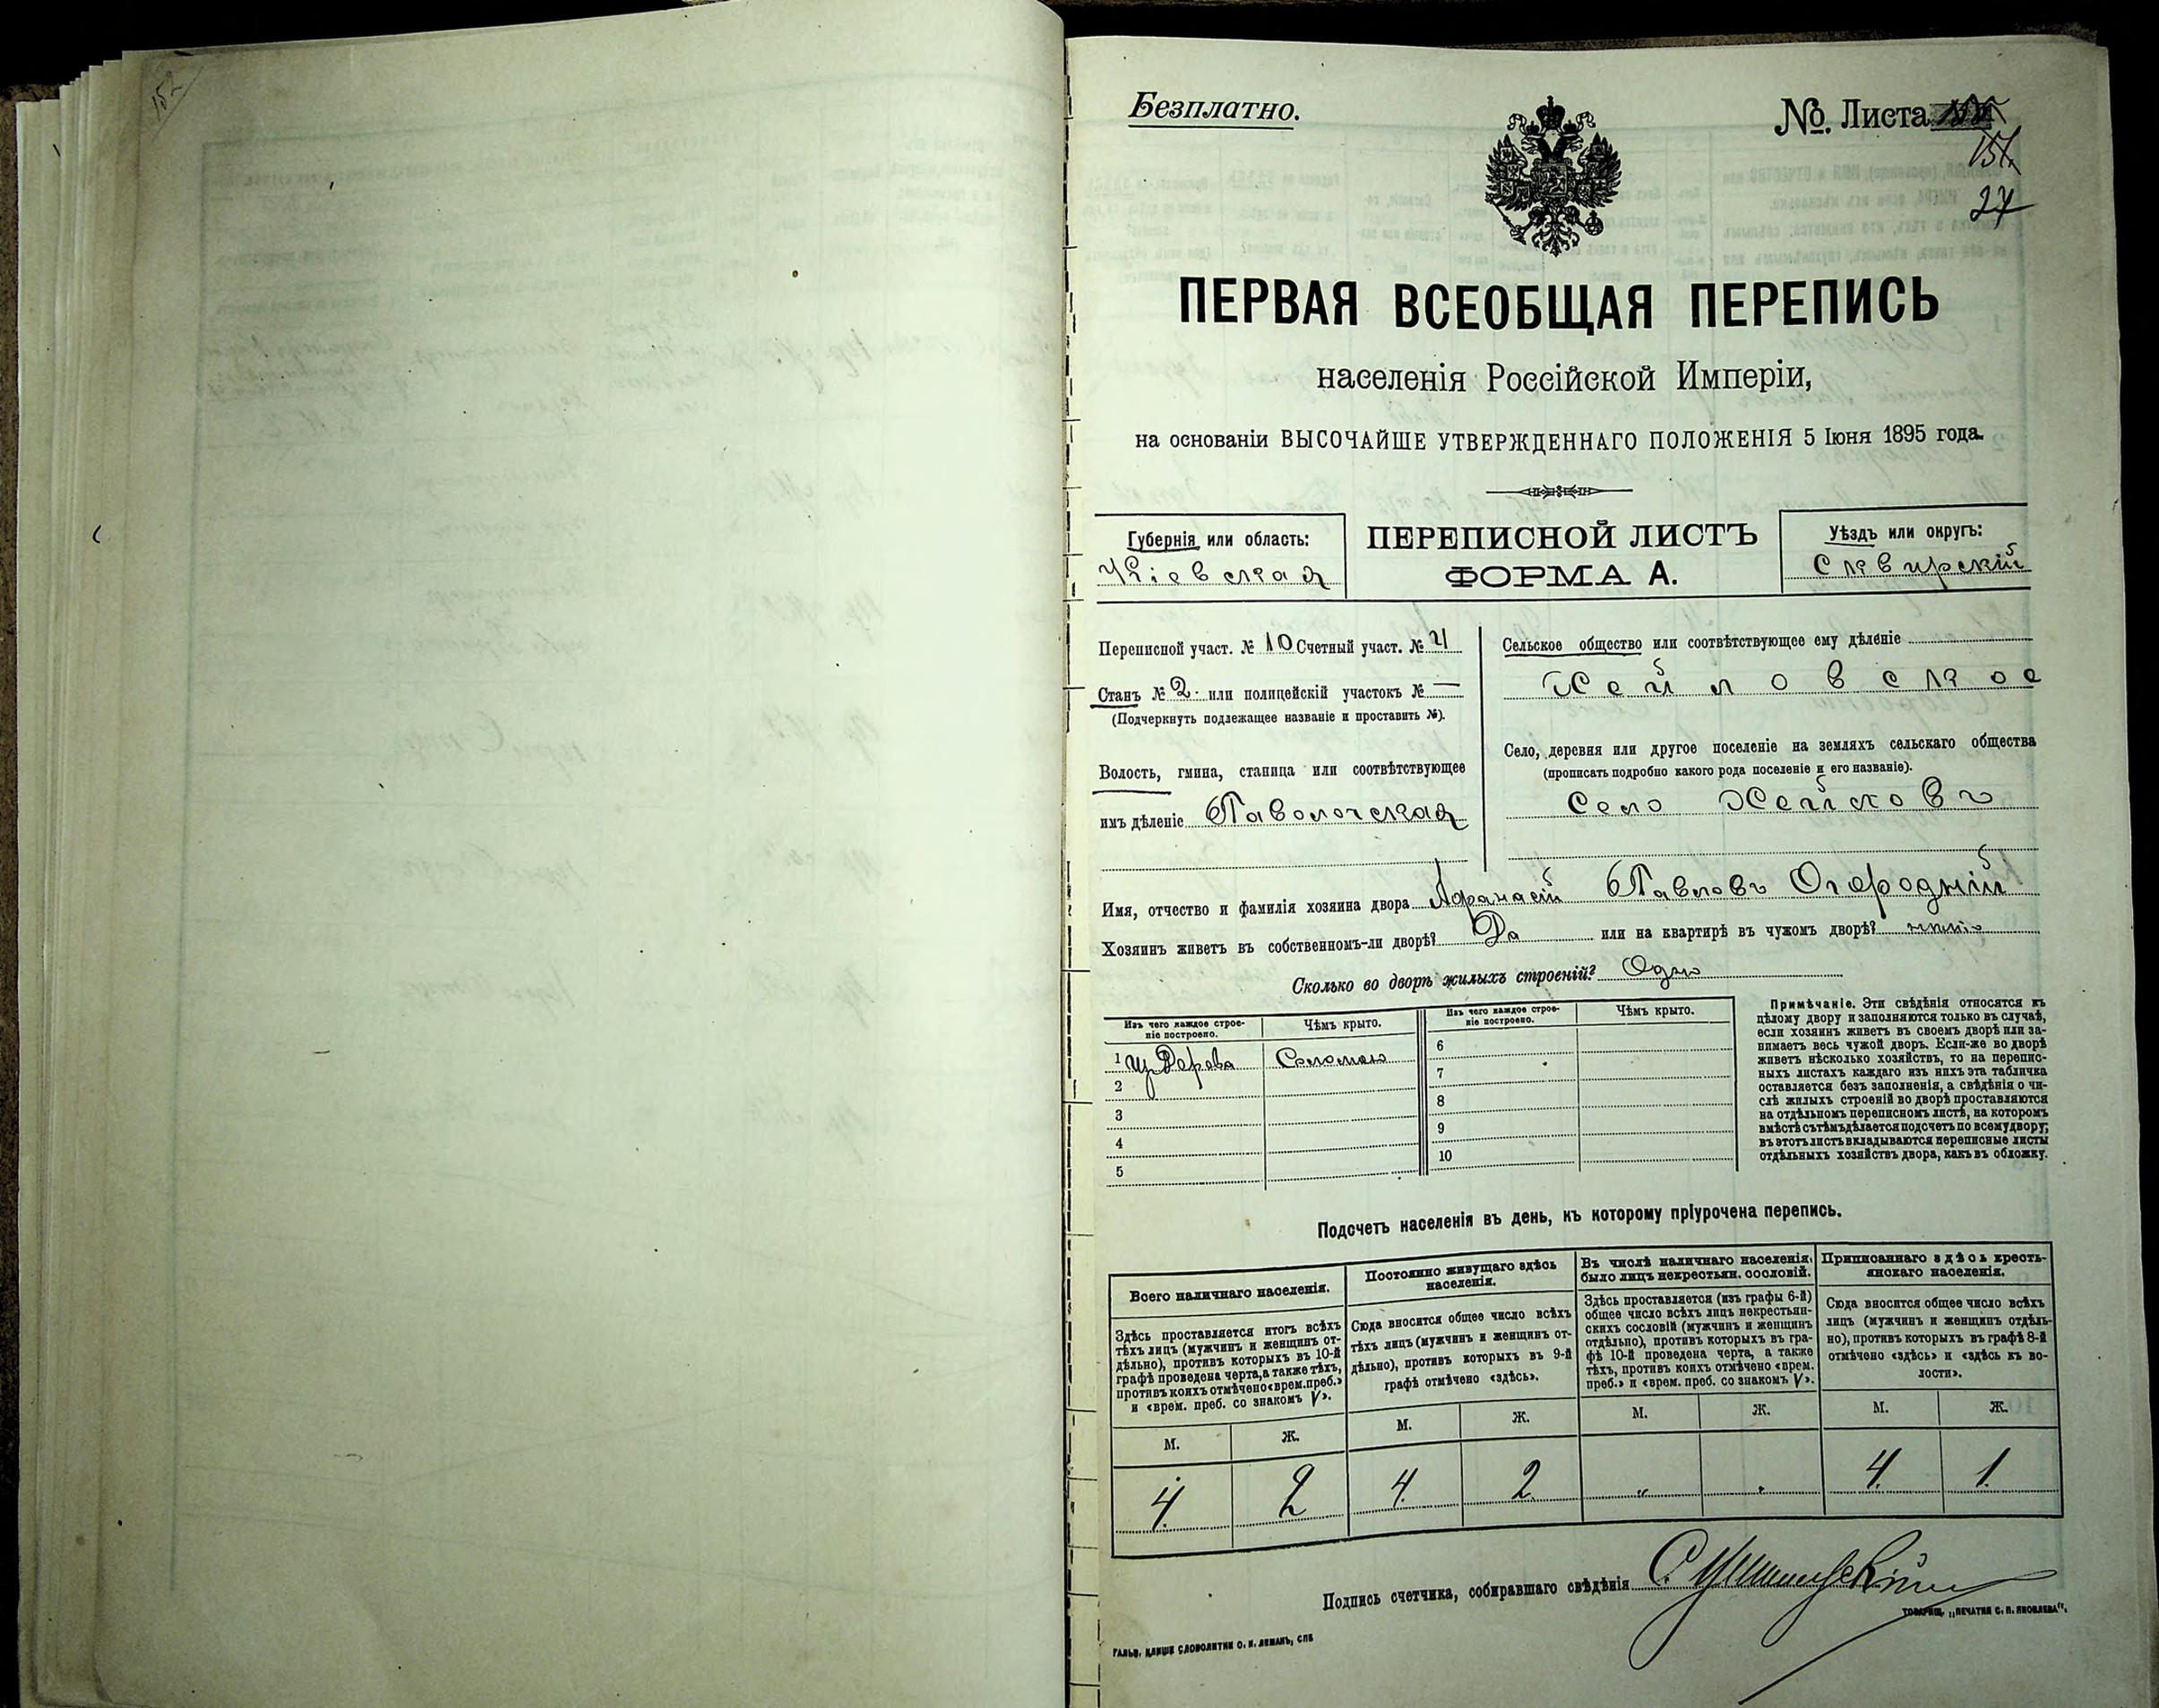 152
Безплатно.
№. Листа
151.
27
ПЕРВАЯ ВСЕОБЩАЯ ПЕРЕПИСЬ
населенія Россійской Имперіи,
на основаніи ВЫСОЧАЙШЕ УТВЕРЖДЕННАГО ПОЛОЖЕНІЯ 5 Іюня 1895 года.
Губернія или область:
Кіевская
ПЕРЕПИСНОЙ ЛИСТЪ
ФОРМА А.
Уѣздъ или округъ:
Сквирскій
Переписной участ. № 10 Счетный участ. № 4
Станъ № 2. или полицейскій участокъ № —
(Подчеркнуть подлежащее названіе и проставить №).
Волость, гмина, станица или соотвѣтствующее
имъ дѣленіе Паволочская
Сельское общество или соотвѣтствующее ему дѣленіе
Хейловское
Село, деревня или другое поселеніе на земляхъ сельскаго общества
(прописать подробно какого рода поселеніе и его названіе).
Село Хейлово
Имя, отчество и фамилія хозяина двора Афанасій Павловъ Огородній
Хозяинъ живетъ въ собственномъ-ли дворѣ? Да или на квартирѣ въ чужомъ дворѣ?
Сколько во дворѣ жилыхъ строеній? Одно
Изъ чего каждое строе-
ніе построено.
Чѣмъ крыто.
Изъ чего каждое строе-
ніе построено.
Чѣмъ крыто.
1 Изъ Дерева Соломою
2
3
4
5
6
7
8
9
10
Примѣчаніе. Эти свѣдѣнія относятся къ
цѣлому двору и заполняются только въ случаѣ,
если хозяинъ живетъ въ своемъ дворѣ или за-
нимаетъ весь чужой дворъ. Если-же во дворѣ
живетъ нѣсколько хозяйствъ, то на перепис-
ныхъ листахъ каждаго изъ нихъ эта табличка
оставляется безъ заполненія, а свѣдѣнія о чи-
слѣ жилыхъ строеній во дворѣ проставляются
на отдѣльномъ переписномъ листѣ, на которомъ
вмѣстѣ съ тѣмъ дѣлается подсчетъ по всему двору;
въ этотъ листъ вкладываются переписные листы
отдѣльныхъ хозяйствъ двора, какъ въ обложку.
Подсчетъ населенія въ день, къ которому пріурочена перепись.
Всего наличнаго населенія.
Здѣсь проставляется итогъ всѣхъ
тѣхъ лицъ (мужчинъ и женщинъ от-
дѣльно), противъ которыхъ въ 10-й
графѣ проведена черта, а также тѣхъ,
противъ коихъ отмѣчено «врем. преб.»
и «врем. преб. со знакомъ V».
Постоянно живущаго здѣсь
населенія.
Сюда вносится общее число всѣхъ
тѣхъ лицъ (мужчинъ и женщинъ от-
дѣльно), противъ которыхъ въ 9-й
графѣ отмѣчено «здѣсь».
Въ числѣ наличнаго населенія
было лицъ некрестьян. сословій.
Здѣсь проставляется (изъ графы 6-й)
общее число всѣхъ лицъ некрестьян-
скихъ сословій (мужчинъ и женщинъ
отдѣльно), противъ которыхъ въ гра-
фѣ 10-й проведена черта, а также
тѣхъ, противъ коихъ отмѣчено «врем.
преб.» и «врем. преб. со знакомъ V».
Приписаннаго здѣсь кресть-
янскаго населенія.
Сюда вносится общее число всѣхъ
лицъ (мужчинъ и женщинъ отдѣль-
но), противъ которыхъ въ графѣ 8-й
отмѣчено «здѣсь» и «здѣсь къ во-
лости».
М. Ж. М. Ж. М. Ж. М. Ж.
4. 2 4. 2. „ . 4. 1.
Подпись счетчика, собиравшаго свѣдѣнія
ГАЛЬВ. КЛИШЕ СЛОВОЛИТНИ О. И. ЛЕМАНЪ, СПБ
ТОВАРИЩ. „ПЕЧАТНЯ С. П. ЯКОВЛЕВА“.